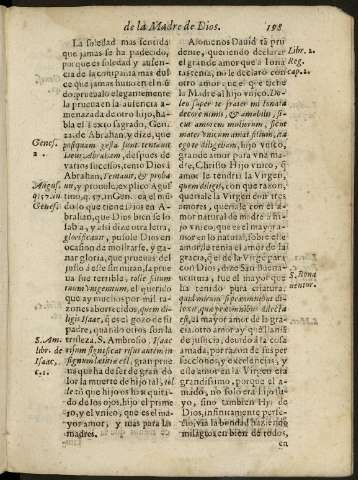 de la Madre de Dios. 198
La soledad mas sentida
que jamas se ha padecido,
porque es soledad y ausen-
cia de la compañia mas dul
ce que jamas huuo en el mũ
do prueualo elegantemente
la prueua en la ausencia a-
menazada de otro hijo, ha-
bla el Texto sagrado, Gen.
22. de Abrahan y dize, que
postquam gesta sunt
Abraham, despues de
varios sucessos, tentò Dios à
Abrahan, Tentauit, & proba
uit, y prouole, explico Agus
tino, q. 57. in Gen. ea el mũ
do lo que tiene Dios en A-
brahan, que Dios bien se lo
sabia, y assi dize otra letra,
glorificauit, pusole Dios en
ocasion de militarse, y ga-
nar gloria, que prueuas del
justo à esse fin miran, la prue
ua fue terrible, tolle filium
tuum vnigenitum, el querido
que ay muchos por mil ra-
zones aborrecidos, quem di-
ligis Isaac, q̃ es el gozo de su
padre, quando otros son la
tristeza, S. Ambrosio, Isaac
risum significat risus autem in
signum latitia est, gran prue
ua que ha de ser de gran do
lor la muerte de hijo tal, tol
le tó que hijo os han quita-
do de los ojos, hijo el prime
ro, y el vnico, que es el ma-
yor amor, y mas para las
madres.
Genes.
2.
Augus.
q. 57. in
Genes.
S. Am.
libr. de
Isaac,
c. 1.
Asomenos Dauid tã pru
dente, queriendo declarar
el grande amor que à Iona
tas tenia, no le declarò con
otro amor, ne el que tiene
la Madre al hijo vnico. Do-
leo super te frater mi Ionata
decore nimis, & amabilis, si-
cut amorem mulierum, sicut
mater vnicum amat filium, ita
ego te diligebam, hijo vnico,
grande amor para vna ma-
dre, Christo Hijo vnico, q̃
amor le tendria la Virgen,
quem diligis, con que razon,
querriale la Virgen con tres
amores, querriale con el a-
mor natural de madre a hi-
jo vnico, que es el mayor a-
mor en lo natural, sobre este
amor, le tenia el amor de la
gracia, q̃ el de la Virgen para
con Dios, dize San Buena-
uentura, fue el mayor que
ha tenido pura criatura,
es, al mayor amor de la gra-
cia, otro amor ay que llama
de justicia, deuido à la cosa
amada, por razon de sus per
fecciones, y excelencias, y
este amor en la Virgen era
grandissimo, porque el a-
mado, no solo era Hijo su-
yo, sino tambien Hijo de
Dios, infinitamente perfec-
to, via la bondad haziendo
milagros en bien de todos,
en
Libr. 2.
Reg.
cap. 2.
S. Bona
uentur.